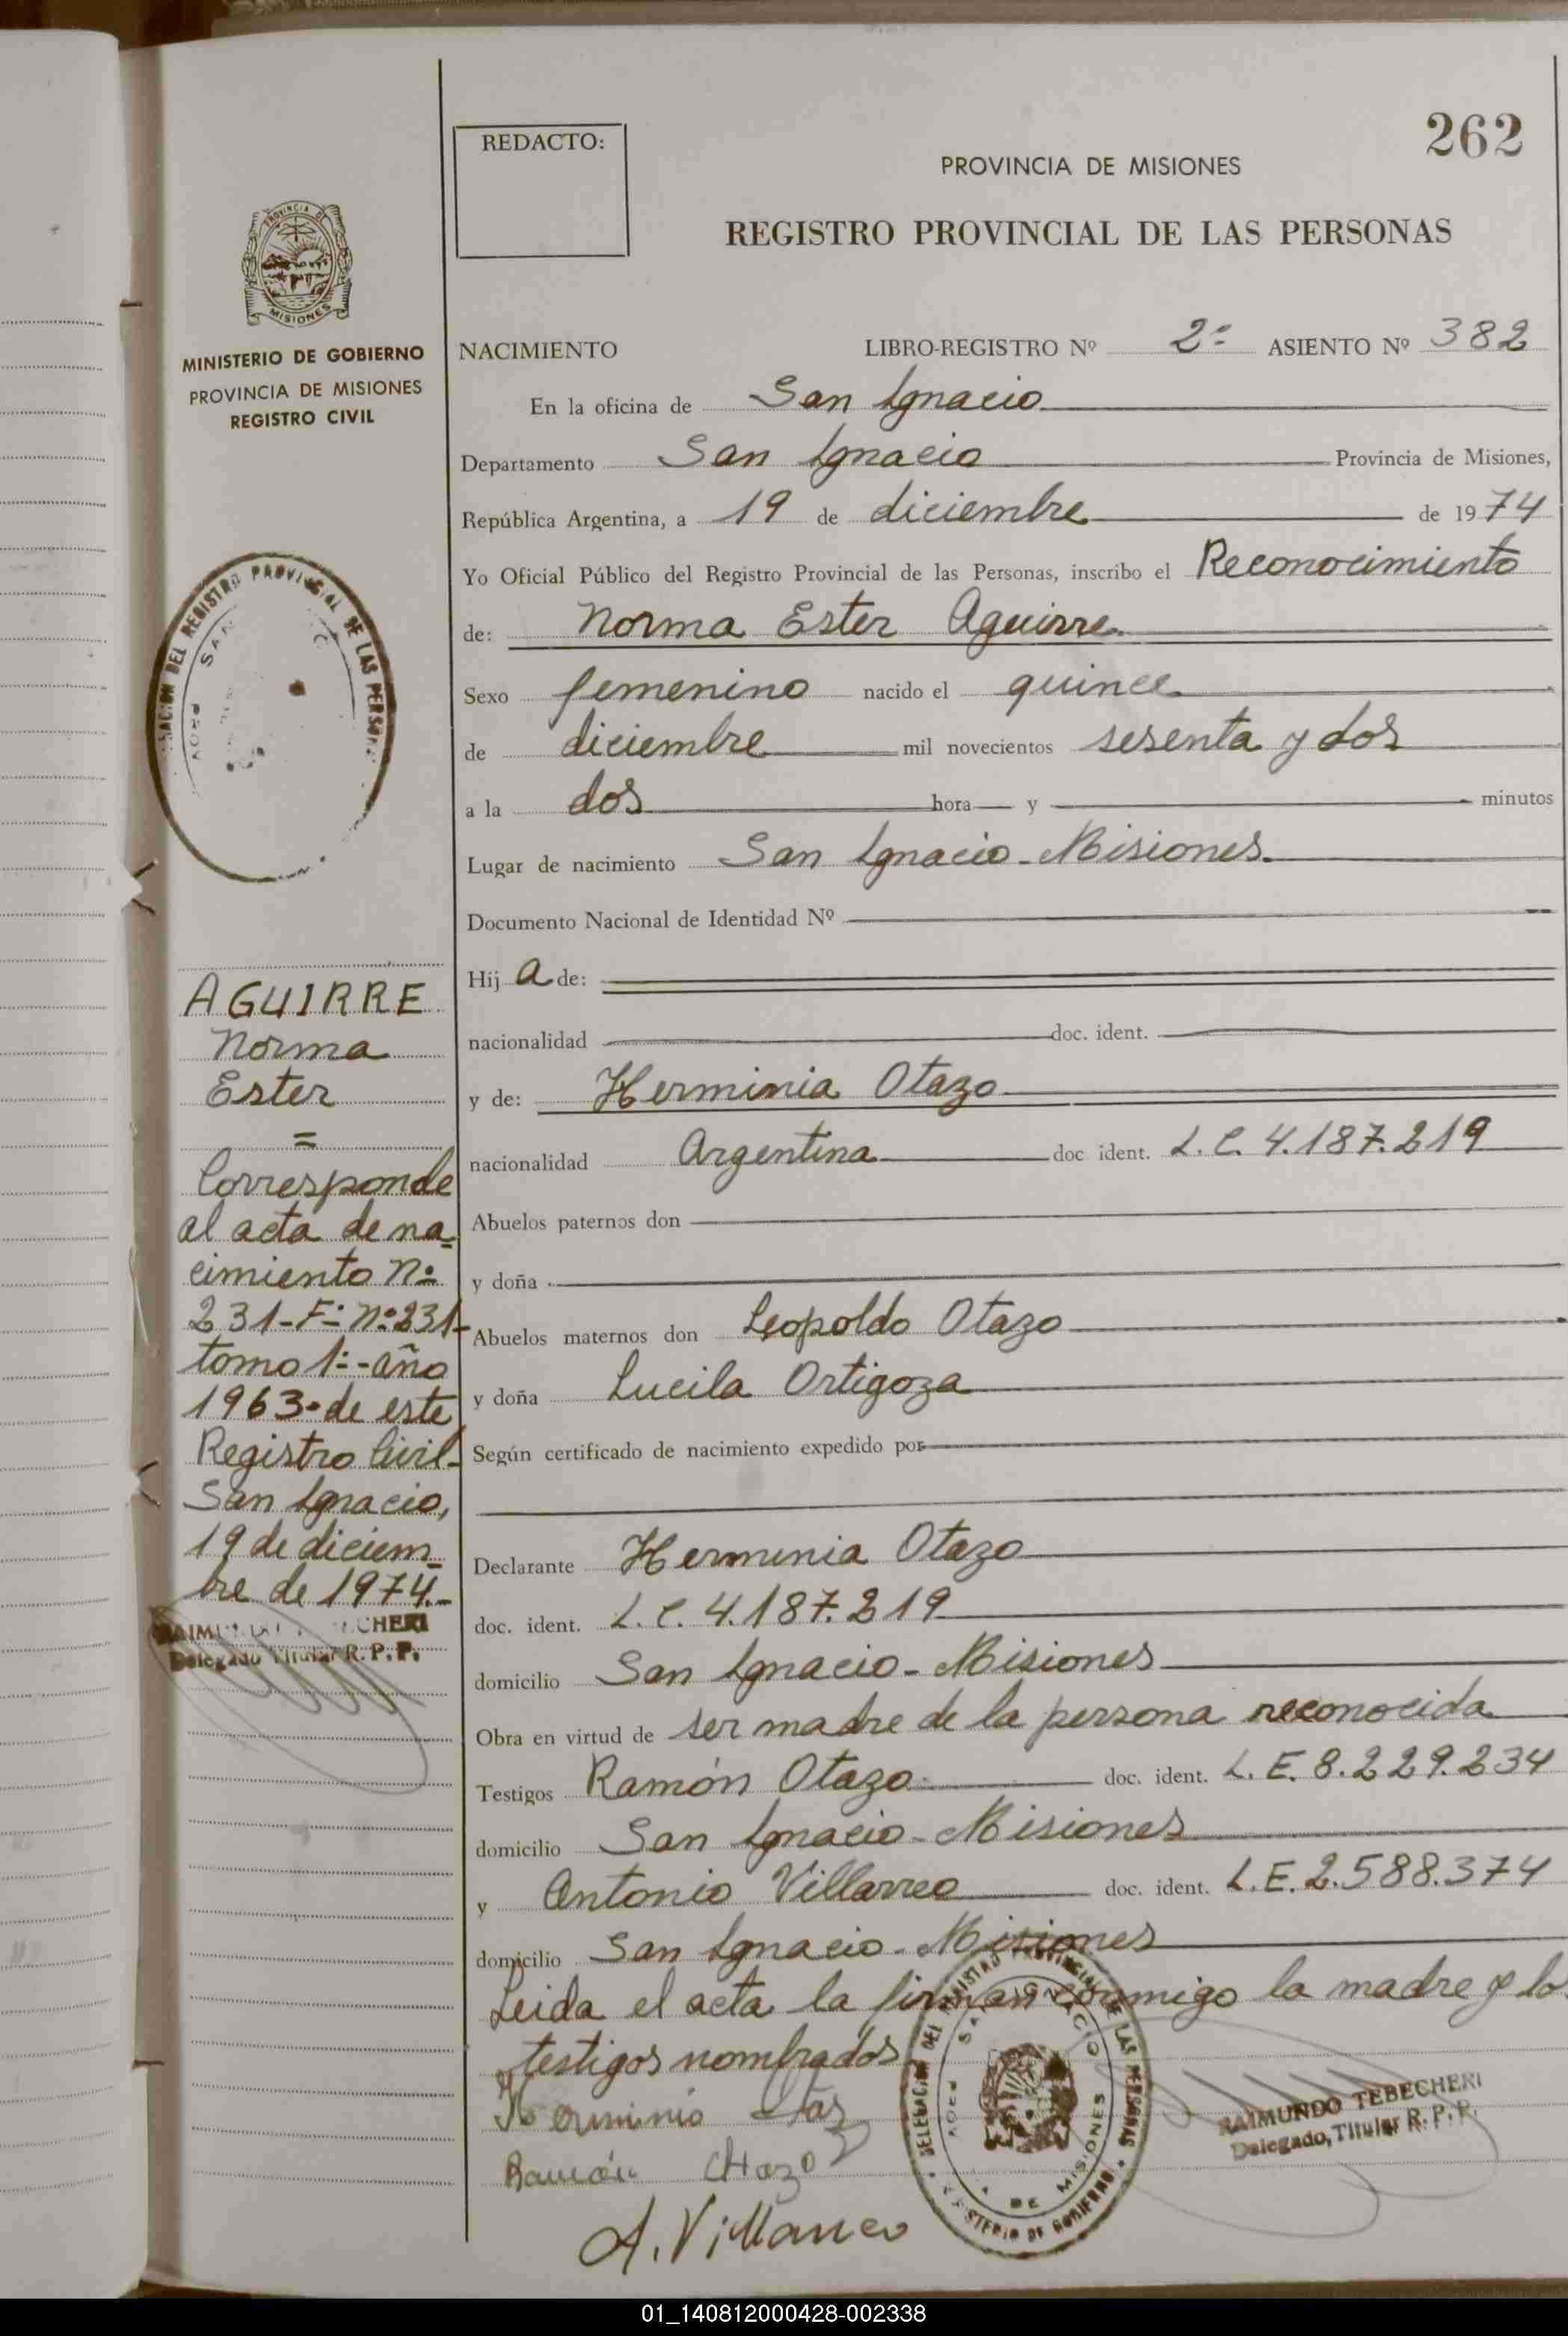 262
REDACTO:
PROVINCIA DE MISIONES
REGISTRO PROVINCIAL DE LAS PERSONAS
PROVINCIA DE
MISIONES
MINISTERIO DE GOBIERNO
PROVINCIA DE MISIONES
REGISTRO CIVIL
NACIMIENTO LIBRO-REGISTRO Nº 2º ASIENTO Nº 382
En la oficina de San Ignacio
Departamento San Ignacio Provincia de Misiones,
República Argentina, a 19 de diciembre de 1974
Yo Oficial Público del Registro Provincial de las Personas, inscribo el Reconocimiento
de: Norma Ester Aguirre
Sexo femenino nacido el quince
de diciembre mil novecientos sesenta y dos
a la dos hora y minutos
Lugar de nacimiento San Ignacio - Misiones
Documento Nacional de Identidad Nº
Hij a de:
nacionalidad doc. ident.
y de: Herminia Otazo
nacionalidad Argentina doc ident. L.C. 4.187.219
Abuelos paternos don
y doña
Abuelos maternos don Leopoldo Otazo
y doña Lucila Ortigoza
Según certificado de nacimiento expedido por
Declarante Herminia Otazo
doc. ident. L.C. 4.187.219
domicilio San Ignacio - Misiones
Obra en virtud de ser madre de la persona reconocida
Testigos Ramón Otazo doc. ident. L.E. 8.229.234
domicilio San Ignacio - Misiones
y Antonio Villarreo doc. ident. L.E. 2.588.374
domicilio San Ignacio - Misiones
Leida el acta la firman conmigo la madre y lo
testigos nombrados
Ramón Otazo
A. Villarreo
DELEGACION DEL REGISTRO PROVINCIAL DE LAS PERSONAS
SAN IGNACIO
PROV. DE MISIONES
MINISTERIO DE GOBIERNO
RAIMUNDO TEBECHERI
Delegado, Titular R. P. P.
REGISTRO PROVINCIAL DE LAS PERSONAS
SAN
PROV
AGUIRRE
Norma
Ester
=
Corresponde
al acta de na
cimiento Nº
231-Fº Nº 231-
tomo 1º - año
1963 - de este
Registro Civil-
San Ignacio,
19 de diciem
bre de 1974.-
RAIMUNDO TEBECHERI
Delegado Titular R. P. P.
01_140812000428-002338